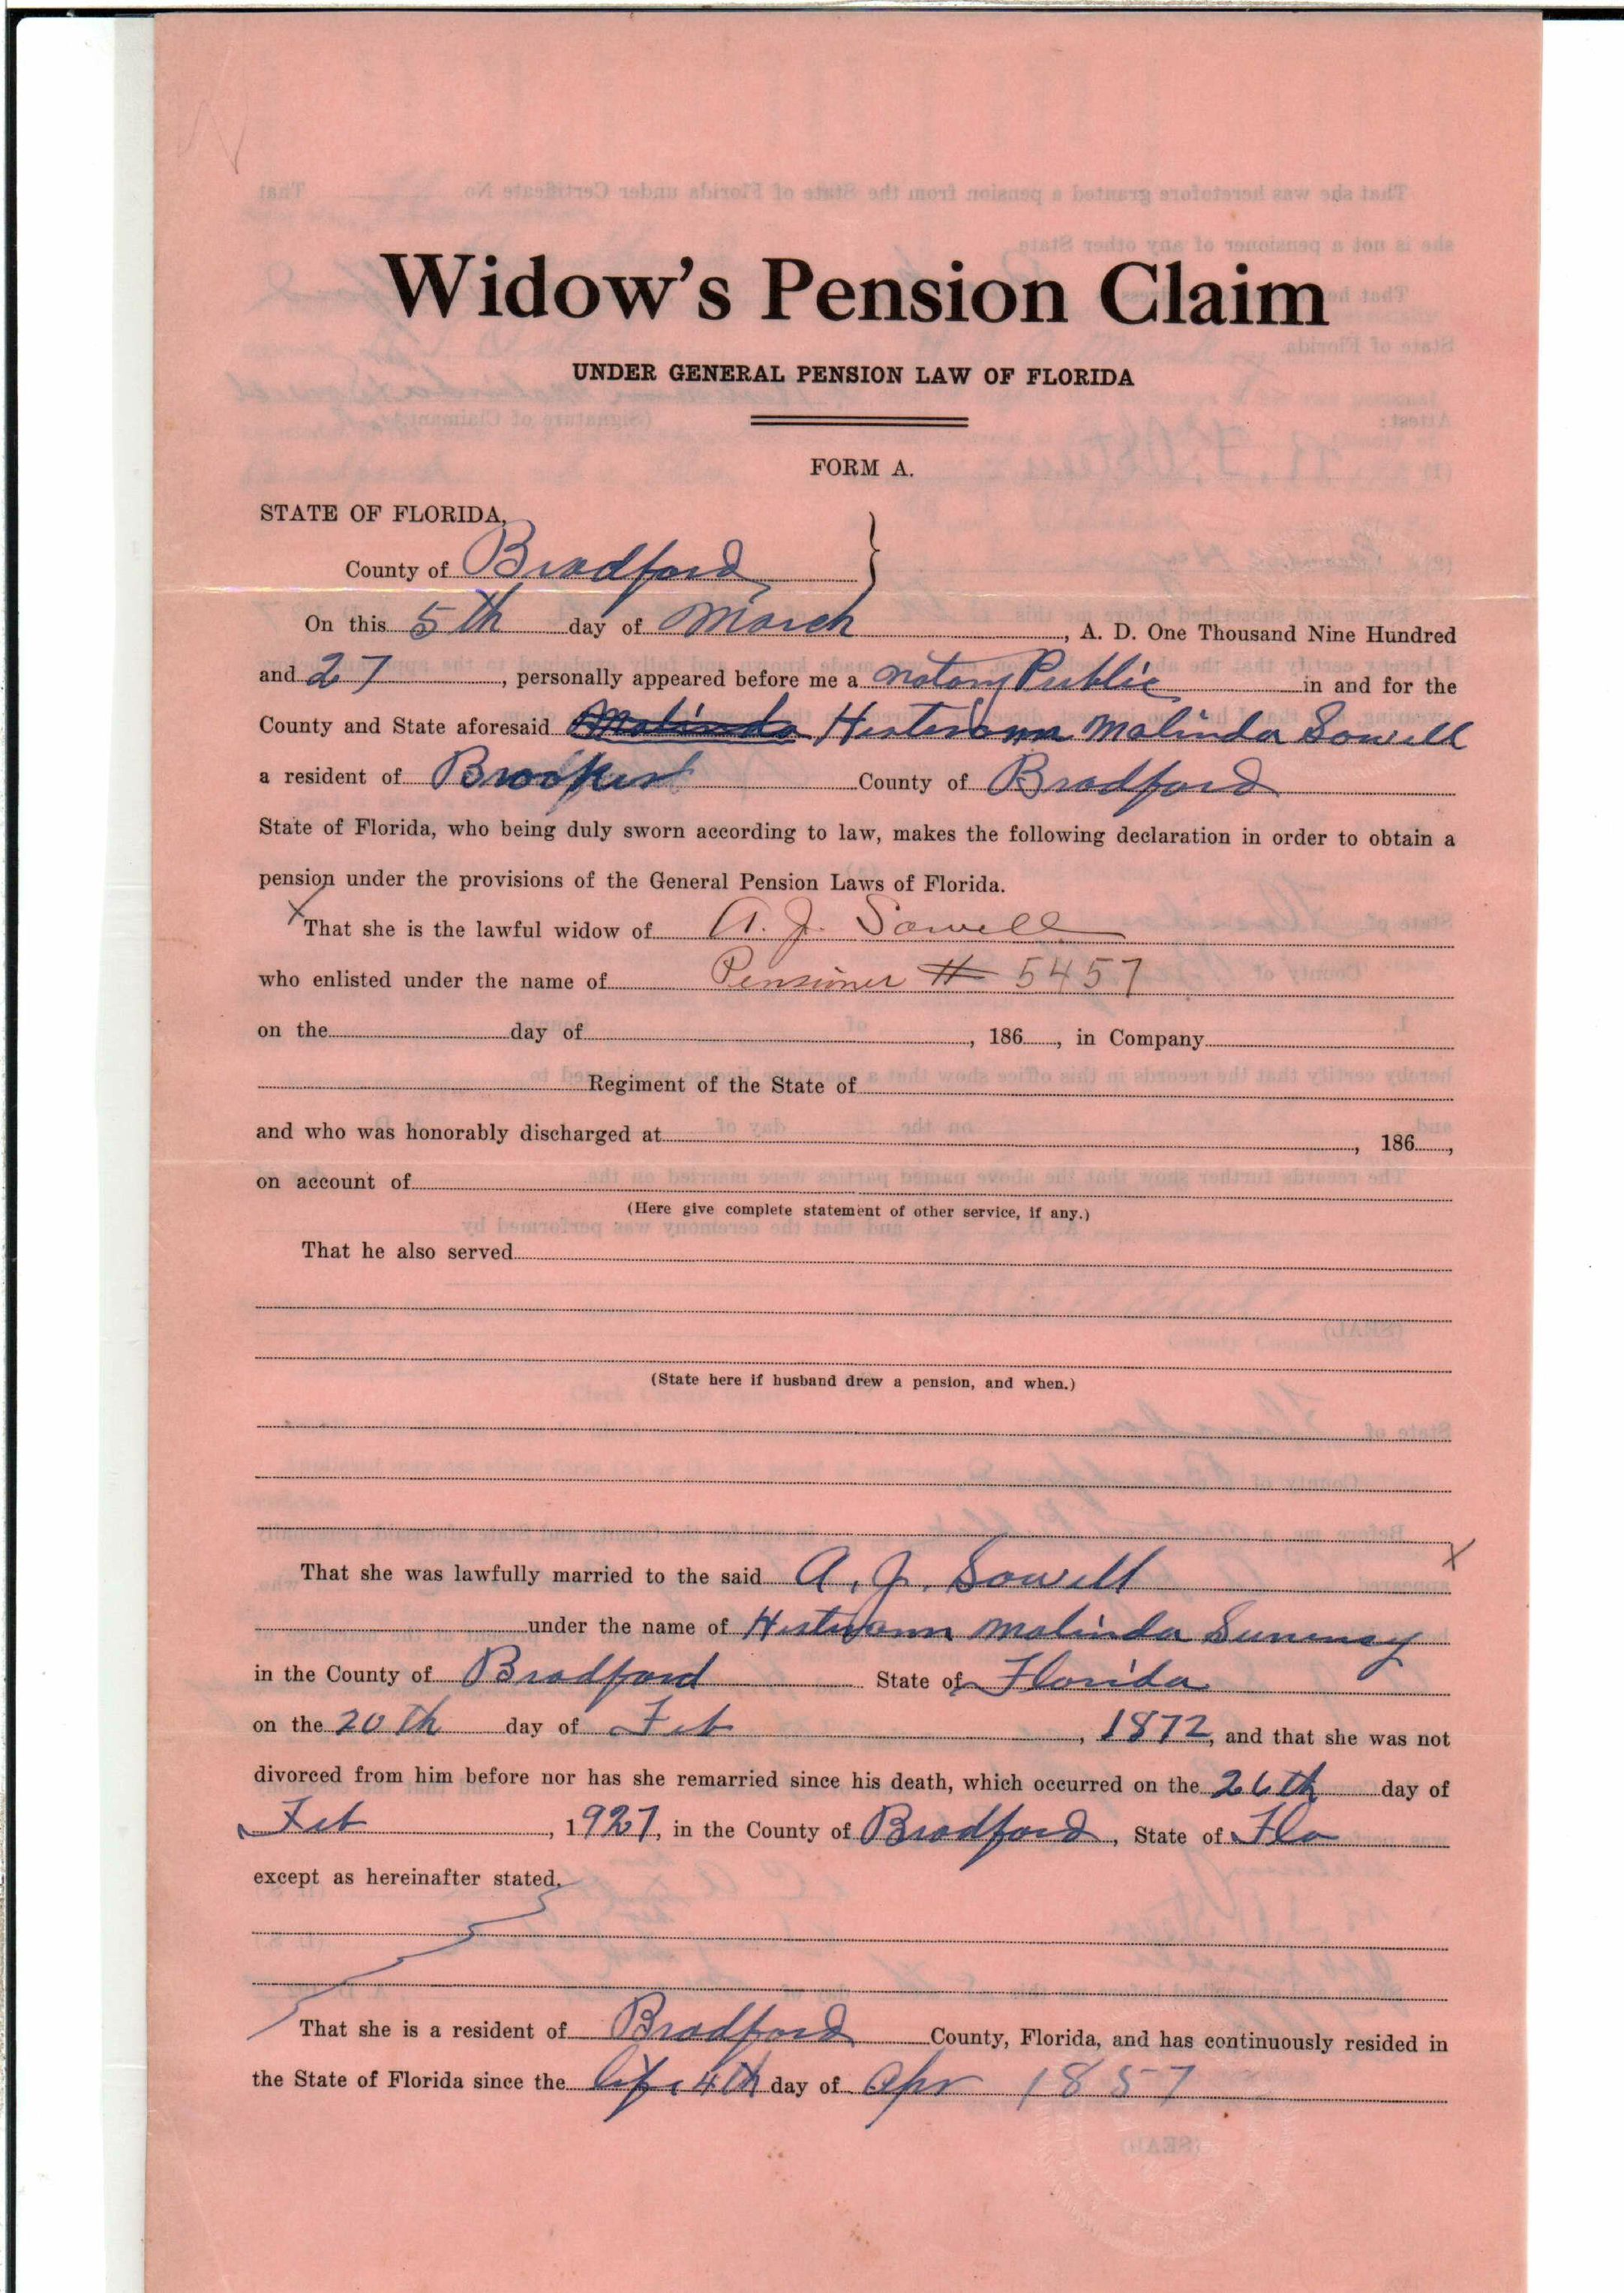 Widow's Pension Claim
UNDER GENERAL PENSION LAW OF FLORIDA
FORM A.
STATE OF FLORIDA,
County of Bradford
On this 5th day of March, A. D. One Thousand Nine Hundred
and 27, personally appeared before me a Notary Public in and for the
County and State aforesaid Malinda Hesterann Malinda Sowell
a resident of Brooker County of Bradford
State of Florida, who being duly sworn according to law, makes the following declaration in order to obtain a
pension under the provisions of the General Pension Laws of Florida.
X That she is the lawful widow of A. J. Sowell
who enlisted under the name of Pensioner # 5457
on the day of , 186 , in Company
Regiment of the State of
and who was honorably discharged at , 186 ,
on account of
(Here give complete statement of other service, if any.)
That he also served
(State here if husband drew a pension, and when.)
X
That she was lawfully married to the said A. J. Sowell
under the name of Hesterann Malinda
in the County of Bradford State of Florida
on the 20th day of Feb , 1872, and that she was not
divorced from him before nor has she remarried since his death, which occurred on the 26th day of
Feb , 1927, in the County of Bradford, State of Fla
except as hereinafter stated.
That she is a resident of Bradford County, Florida, and has continuously resided in
the State of Florida since the life 4th day of Apr 1857